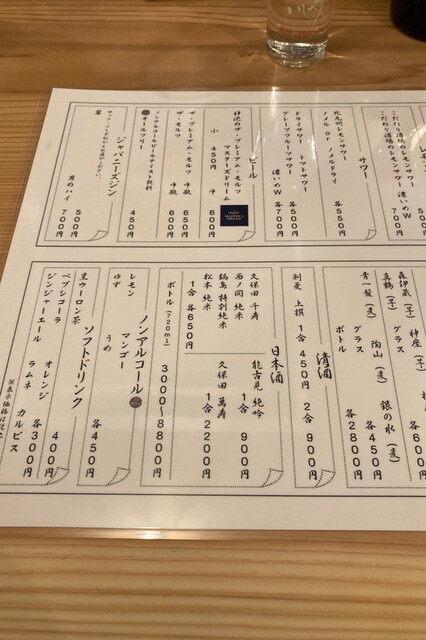 こだわり酒場のレモンサワー
各500円
こだわり酒場のレモンサワー 濃いめW
700円
サワー
北九州レモンサワー
ノメル or ノメルドライ
各550円
ドライサワー トマトサワー
グレープフルーツサワー
各500円
濃いめW 各700円
ビール
神泡のザ・プレミアム・モルツ
マスターズドリーム
小 450円 中 600円
ザ・プレミアム・モルツ 中瓶 650円
ザ・モルツ 中瓶 600円
ノンアルコールビールテイスト飲料
オールフリー 450円
ジャパニーズジン
翠
翠のハイ 700円
森伊蔵（芋） 神座（芋）
真鶴（芋） グラス 各600円
青一髪（麦） 陶山（麦） 銀の水（麦）
グラス 各450円
ボトル 各2800円
清酒
別菱 上撰 1合 450円 2合 900円
日本酒
久保田 千寿
西ノ関 純米
鍋島 特別純米
松本 純米
1合 各650円
能古見 純吟
1合 900円
久保田 萬寿
1合 2200円
ボトル（720ml） 3000〜8800円
ノンアルコール
レモン マンゴー うめ
ゆず
各450円
ソフトドリンク
黒ウーロン茶 400円
ペプシコーラ オレンジ
ジンジャーエール ラムネ カルピス
各300円
※表示価格は税込